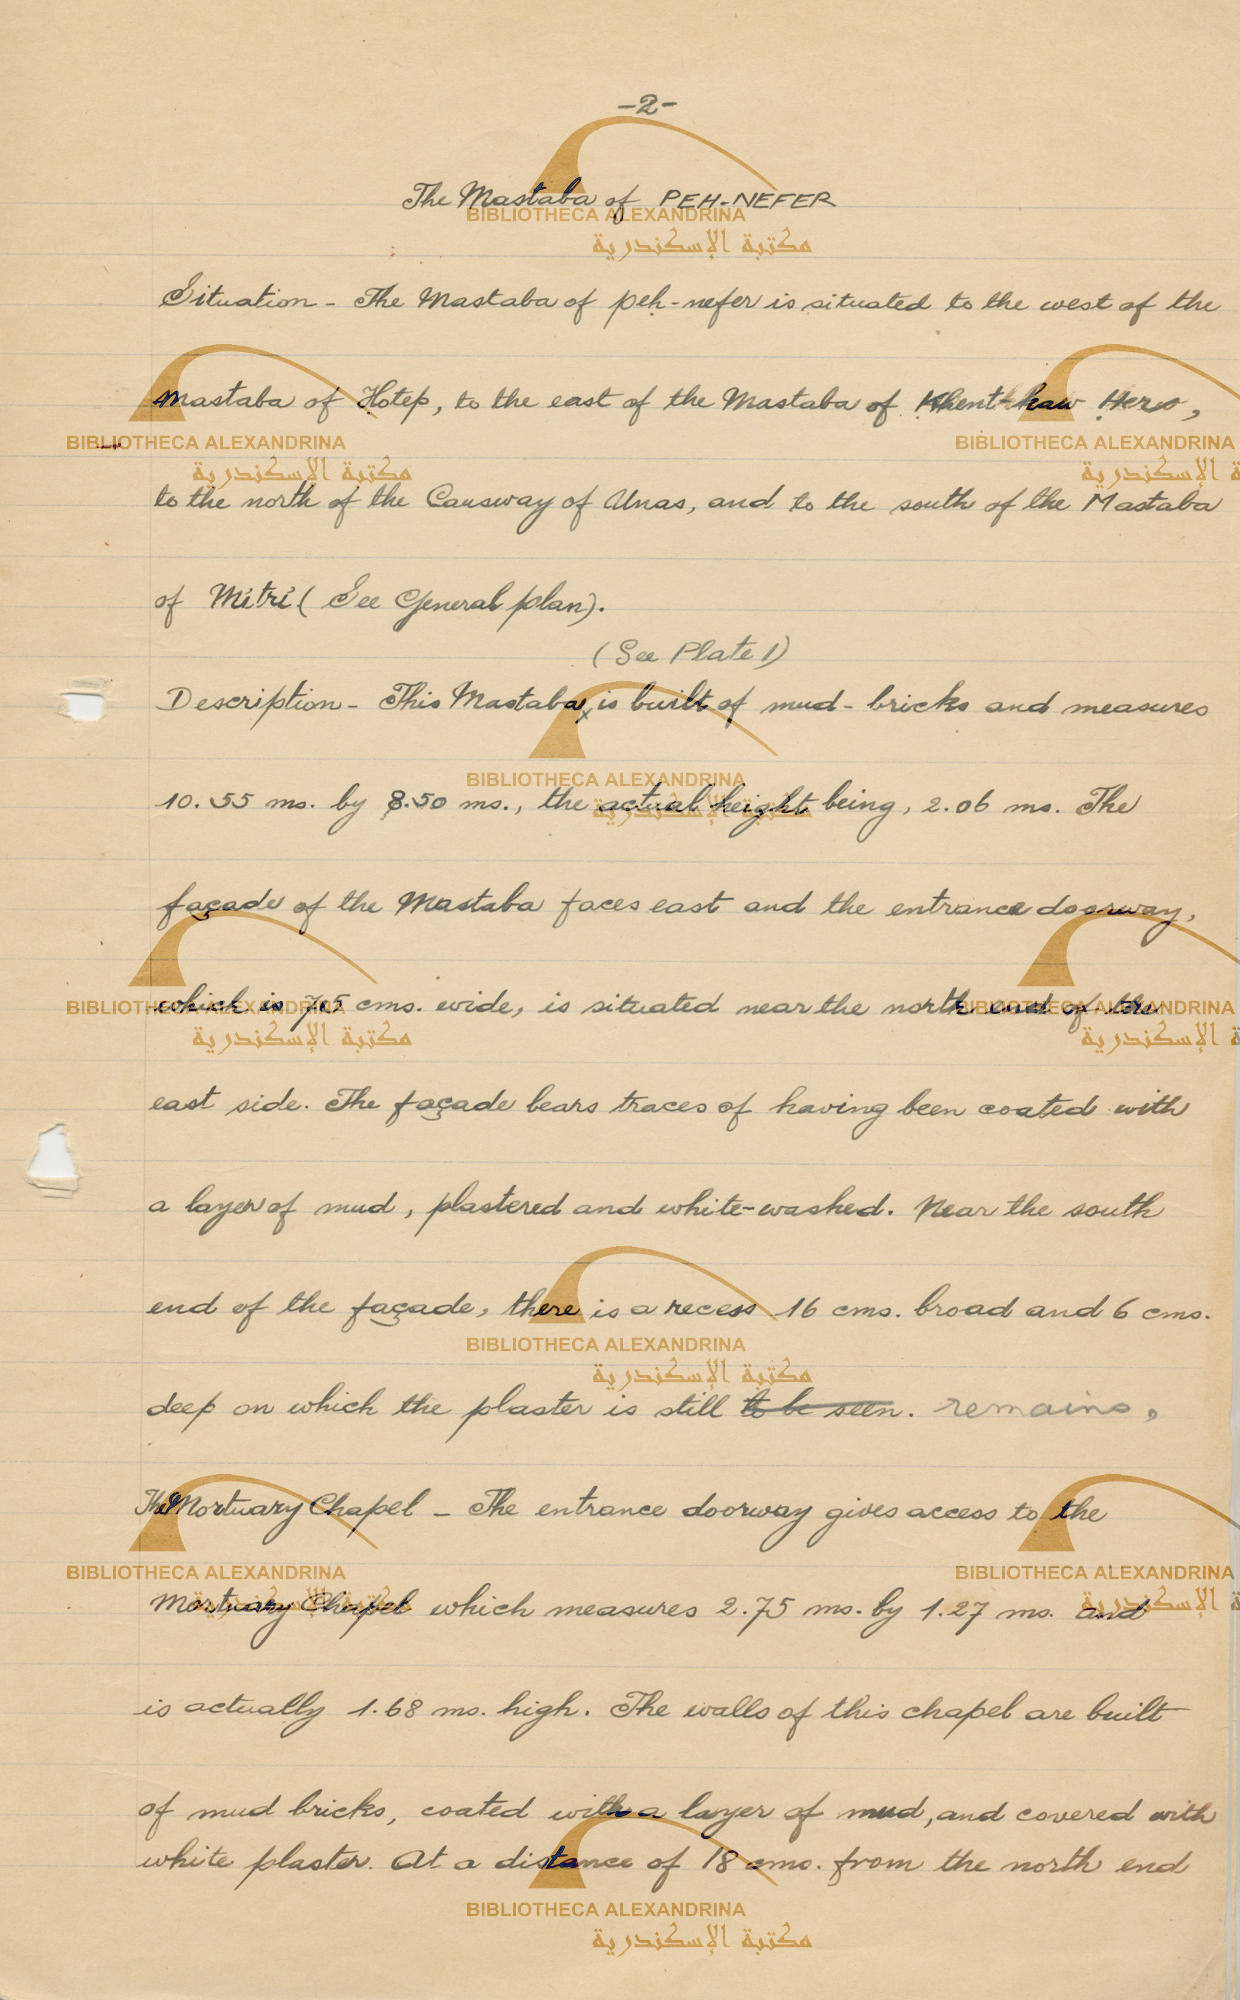 -2-
The Mastaba of PEH-NEFER
Situation - The Mastaba of Peh-nefer is situated to the west of the
mastaba of Hotep, to the east of the Mastaba of Khent-kaw Herw,
to the north of the Causway of Unas, and to the south of the Mastaba
of Mitri (See General plan).
(See Plate 1)
Description - This Mastaba x is built of mud-bricks and measures
10.55 ms. by 8.50 ms., the actual height being, 2.06 ms. The
façade of the Mastaba faces east and the entrance doorway,
which is cms. wide, is situated near the north end of the
east side. The façade bears traces of having been coated with
a layer of mud, plastered and white-washed. Near the south
end of the façade, there is a recess 16 cms. broad and 6 cms.
deep on which the plaster is still to be seen. remains.
The Mortuary Chapel - The entrance doorway gives access to the
Mortuary Chapel which measures 2.75 ms. by 1.27 ms. and
is actually 1.68 ms. high. The walls of this chapel are built
of mud bricks, coated with a layer of mud, and covered with
white plaster. At a distance of 18 cms. from the north end
BIBLIOTHECA ALEXANDRINA
مكتبة الإسكندرية